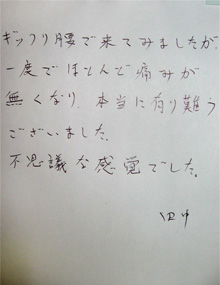 ギックリ腰で来てみましたが、
一度でほとんど痛みが
無くなり、本当に有り難う
ございました。
不思議な感覚でした。